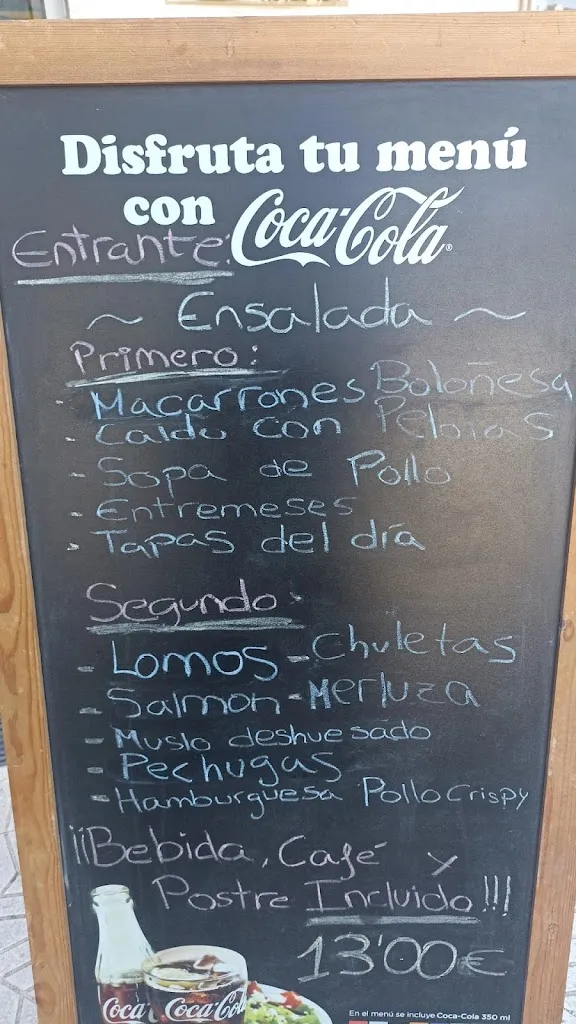 Disfruta tu menú
con Coca-Cola
Entrante:
~ Ensalada ~
Primero:
- Macarrones Boloñesa
- Caldo con Pelotas
- Sopa de Pollo
- Entremeses
- Tapas del día
Segundo:
- Lomos - Chuletas
- Salmon - Merluza
- Muslo deshuesado
- Pechugas
- Hamburguesa Pollo Crispy
¡¡Bebida, Café y
Postre Incluido!!!
13'00€
Coca Coca-Cola
En el menú se incluye Coca-Cola 350 ml